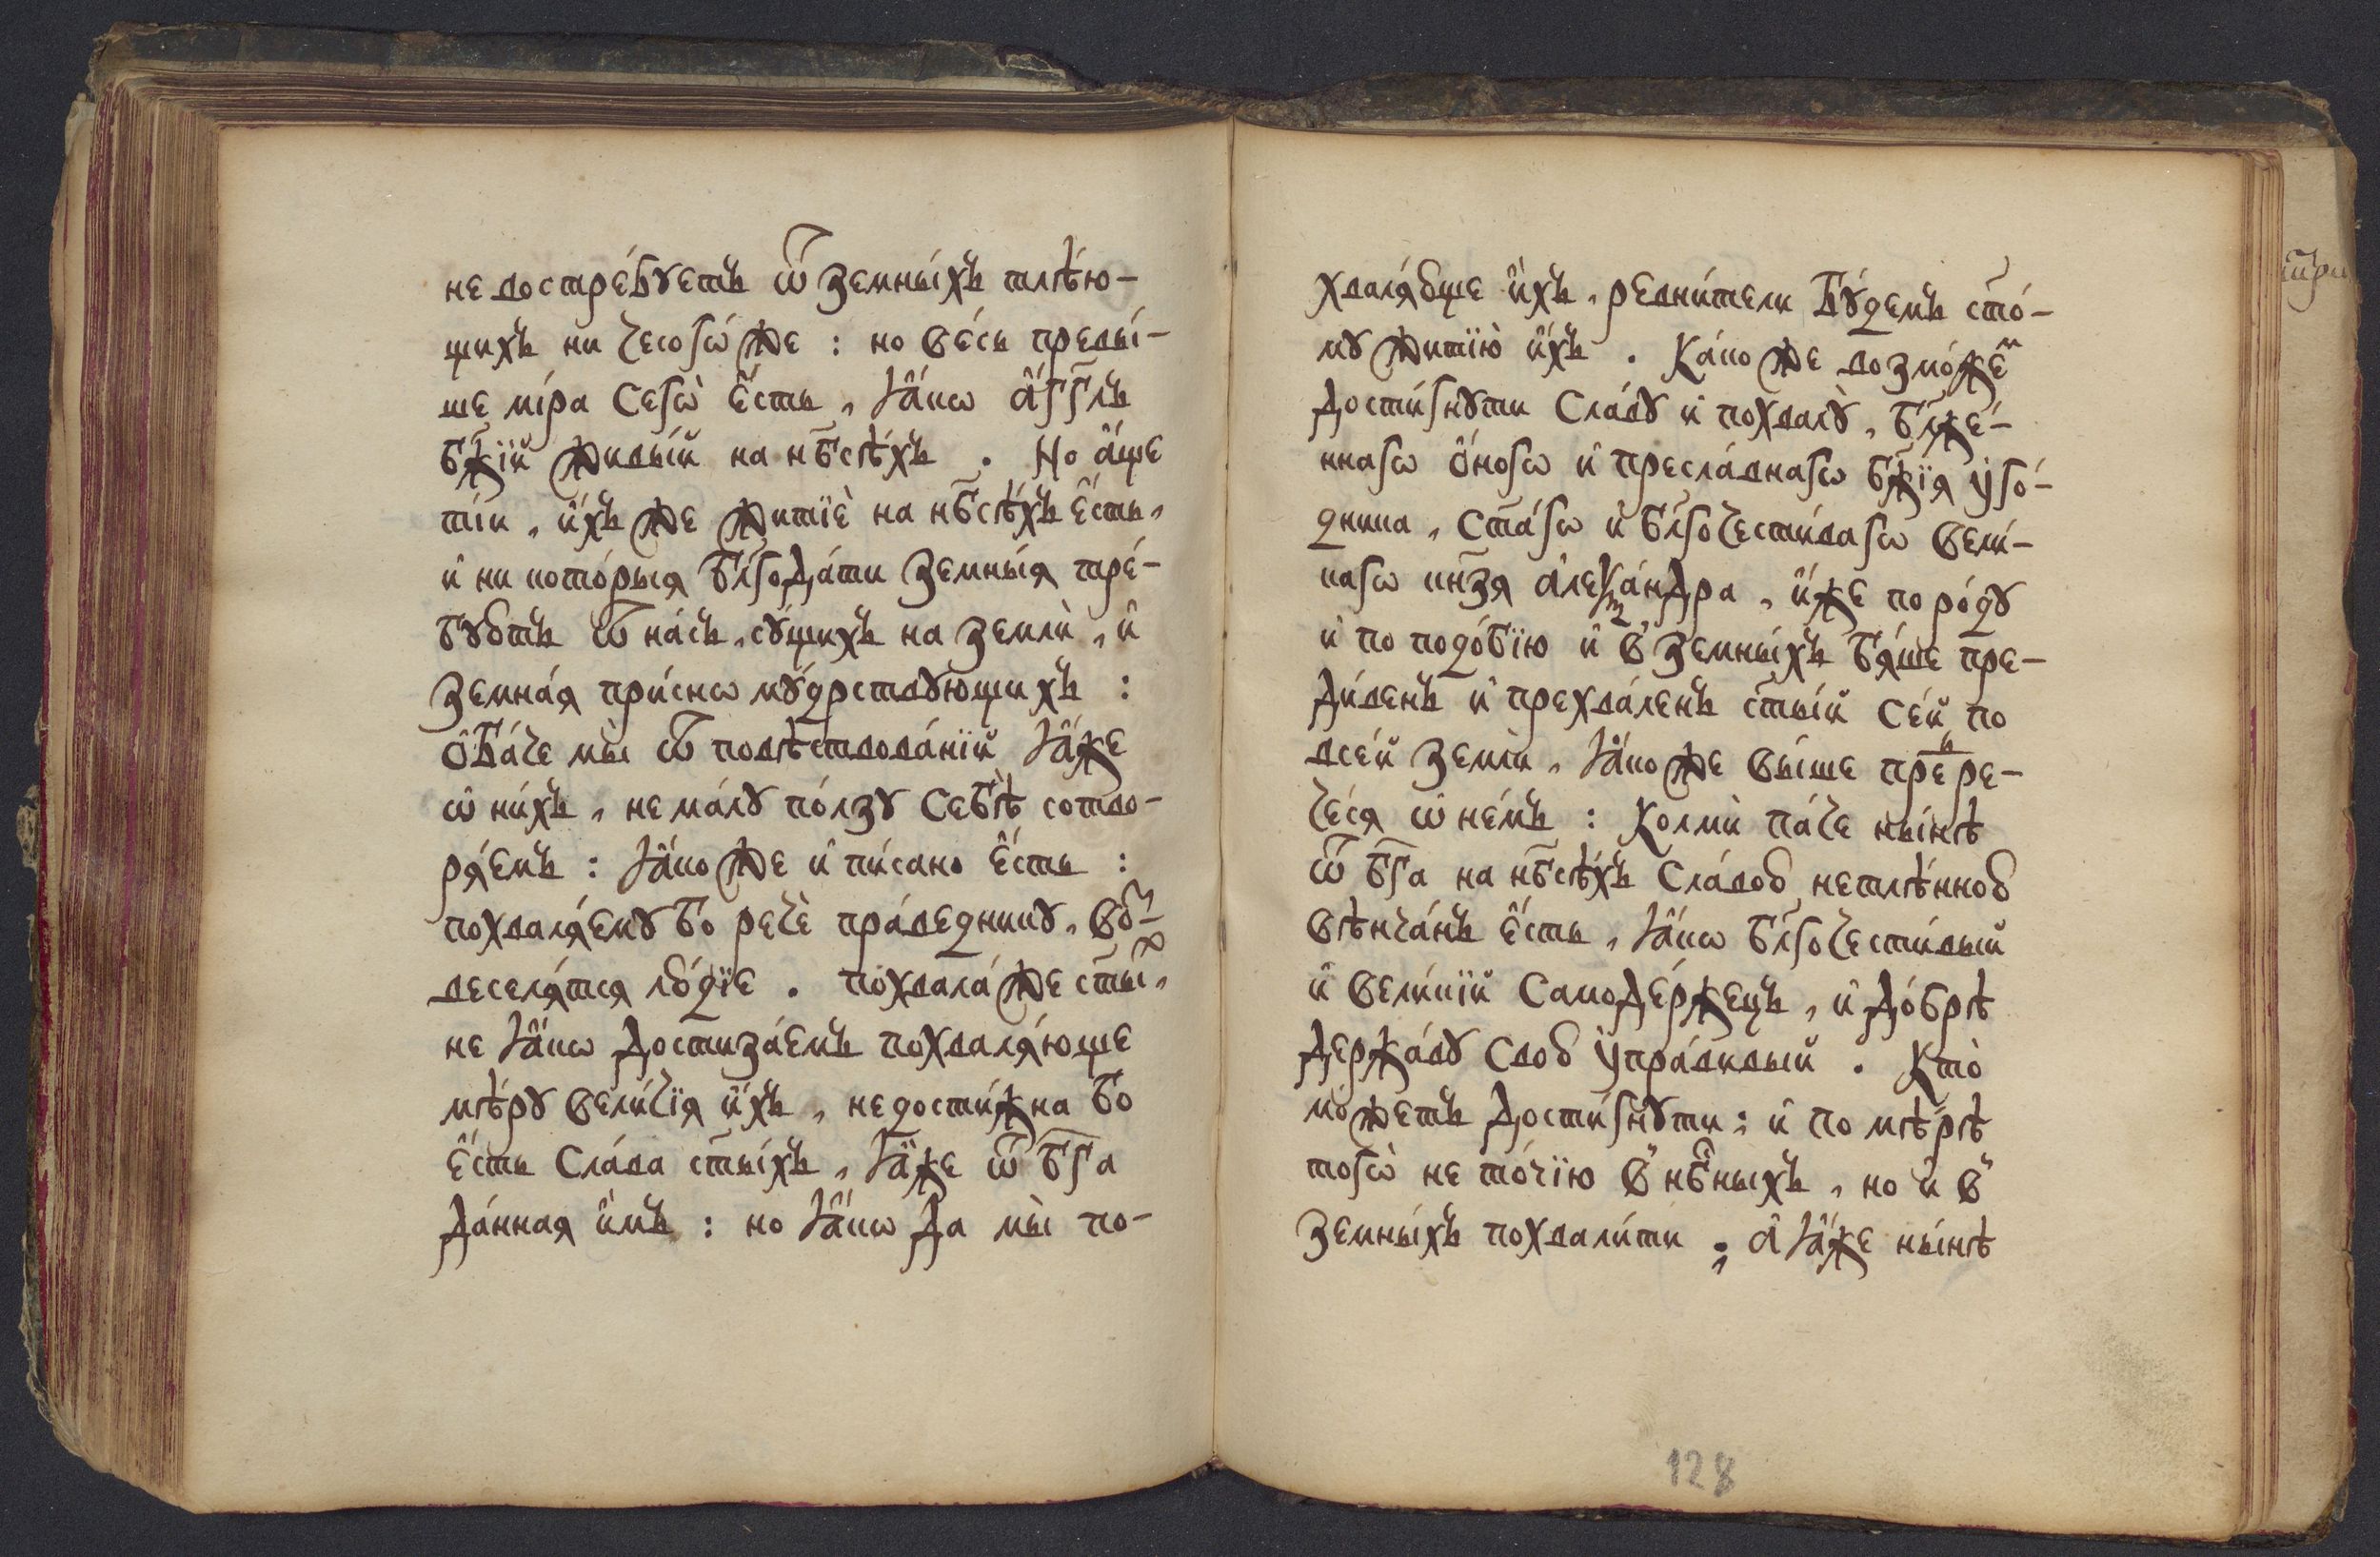 не востре́бꙋетъ ѿ земны́хъ тлѣ́ю-
щихъ ни чесогѡ́ же : но ве́сь превы́-
ше мі́ра сегѡ̀ є҆́сть , ꙗ҆́кѡ а҆́гг҃лъ
бж҃їй живы́й на нб҃сѣ́хъ . Но а҆́ще
ті́и , и҆́хъ же житїѐ на нб҃сѣ́хъ є҆́сть ,
и҆ ни кото́рыя бл҃года́ти земны́я тре́-
бꙋютъ ѿ на́съ , сꙋ́щихъ на землѝ , и҆
земна́я при́снѡ мꙋ́дрствꙋющихъ :
Ѻ҆ба́че мы̀ ѿ повѣствова́нїй ꙗ҆́же
ѡ҆ ни́хъ , не ма́лꙋ по́лзꙋ себѣ̀ сотво-
ря́емъ : ꙗ҆́ко же и҆ пи́сано є҆́сть :
похваля́емꙋ бо речѐ пра́веднику , воз-
веселя́тся лю́дїе . похвала́ же ст҃ы́х ,
не ꙗ҆́кѡ достиза́емъ похваля́юще
мѣ́рꙋ вели́чїя и҆́хъ , недости́жна бо
є҆́сть сла́ва ст҃ы́хъ , ꙗ҆́же ѿ бг҃а
да́нная и҆̀мъ : но ꙗ҆́кѡ да мы̀ по-
хваля́юще и҆́хъ , ревни́тели бꙋ́демъ ст҃о́-
мꙋ житїю̀ и҆́хъ . Ка́ко же возмо́жем
дости́гнꙋти сла́вꙋ и҆ похвалꙋ̀ , бл҃же́-
ннагѡ ѻ҆́ногѡ и҆ пресла́внагѡ бж҃їя ᲂу҆го́-
дника , ст҃а́гѡ и҆ бл҃гочести́вагѡ вели́-
кагѡ кн҃зя а҆леѯа́ндра , и҆́же по ро́дꙋ
и҆ по подо́бїю и҆ в земны́хъ бя́ше пре-
ди́венъ и҆ прехва́ленъ ст҃ы́й се́й по
все́й землѝ , ꙗ҆́ко же вы́ше пренре-
че́ся ѡ҆ не́мъ : Колмѝ па́че ны́нѣ
ѿ бг҃а на нб҃сѣ́хъ сла́вою нетлѣ́нною
вѣнча́нъ є҆́сть , ꙗ҆́кѡ бл҃гочести́вый
и҆ вели́кїй самоде́ржецъ , и҆ до́брѣ
держа́вꙋ свою̀ ᲂу҆пра́вивый . Кто̀
мо́жетъ дости́гнꙋти ; и҆ по мѣ́рѣ
тогѡ̀ не то́чїю в нб҃сныхъ , но и҆ в
земны́хъ похвали́ти ; а҆ ꙗ҆́же ны́нѣ
128